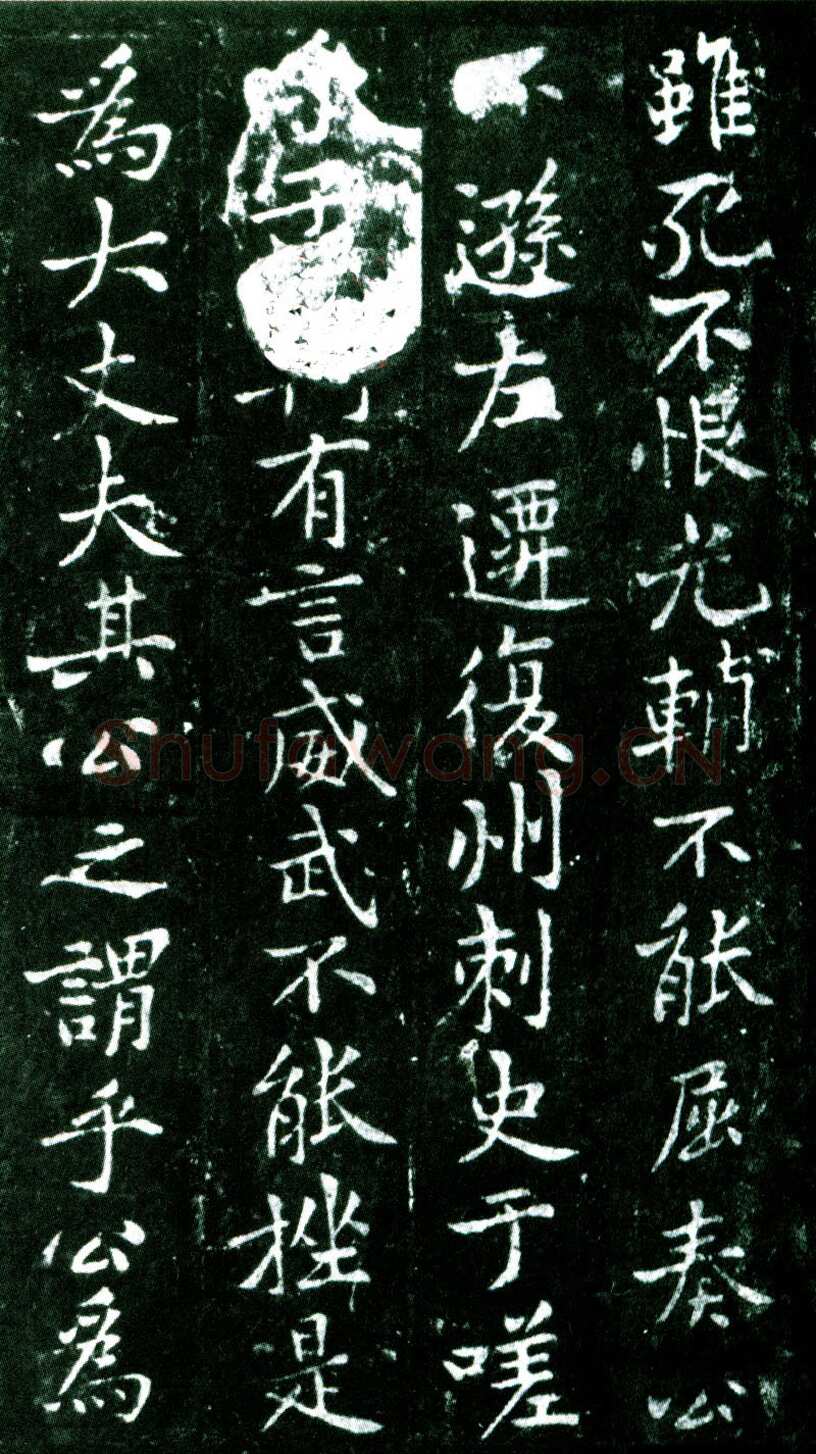 雖死不恨光輔不能屈奏公
不遜左遷復州刺史于嗟
有言威武不能挫是
爲大丈夫其公之謂乎公爲
Shufawang.CN